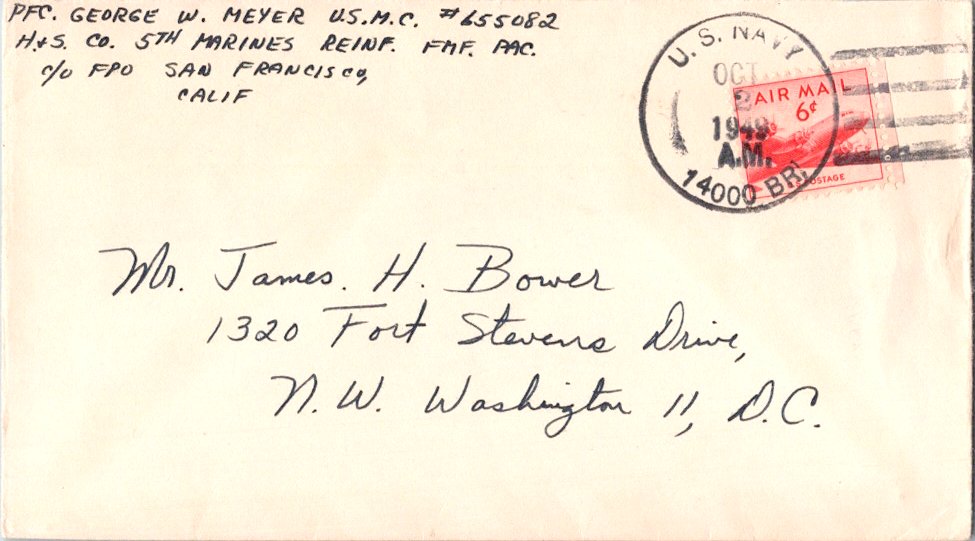 PFC. GEORGE W. MEYER U.S.M.C. #655082
H.&S. CO. 5TH MARINES REINF. FMF. PAC.
c/o FPO SAN FRANCISCO,
CALIF
U.S. NAVY
OCT
2
1949
A.M.
14000 BR.
AIR MAIL
6¢
POSTAGE
Mr. James. H. Bower
1320 Fort Stevens Drive,
N.W. Washington 11, D.C.